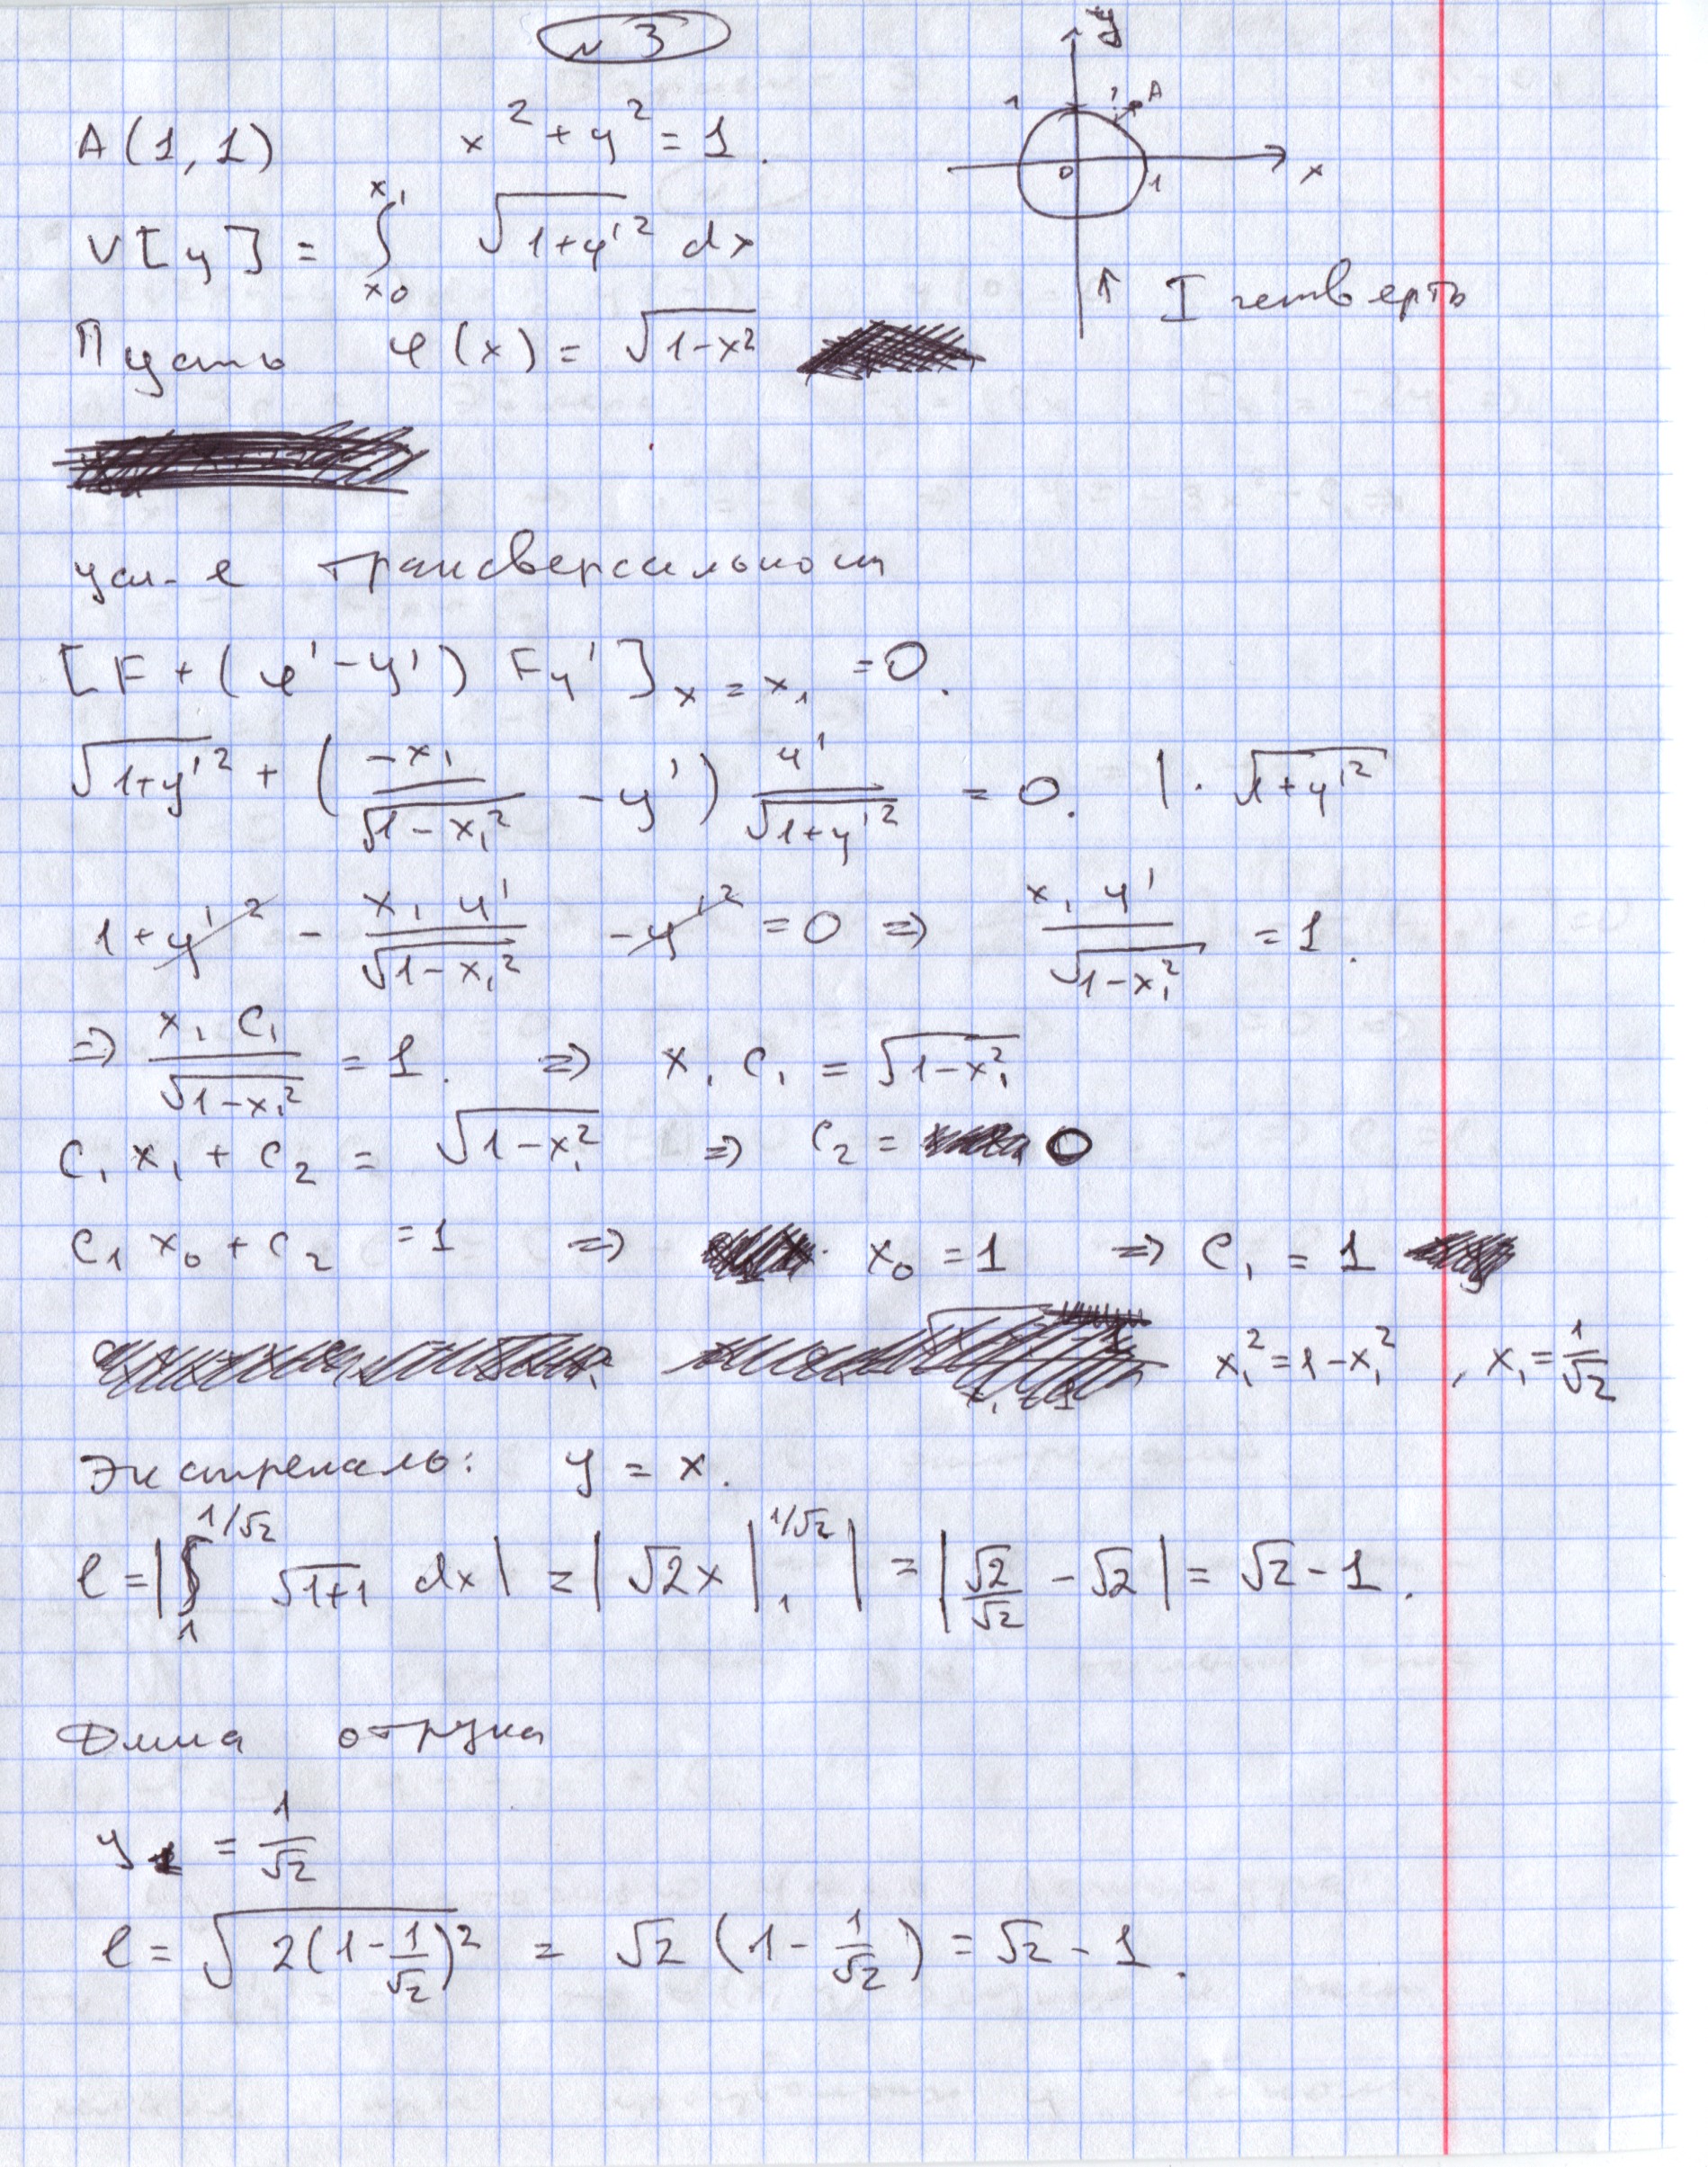 № 3
y
1
A
0
1
x
A(1,1) x² + y² = 1.
V[y] = ∫_{x₀}^{x₁} √(1+y'²) dx
↑ I четверть
Пусть φ(x) = √(1-x²)
усл-е трансверсальност
[F + (φ' - y') F_y']_{x=x₁} = 0.
√(1+y'²) + (-x₁/√(1-x₁²) - y') y'/√(1+y'²) = 0. | · √(1+y'²)
1 + y'² - x₁y'/√(1-x₁²) - y'² = 0 ⇒ x₁y'/√(1-x₁²) = 1.
⇒ x₁C₁/√(1-x₁²) = 1. ⇒ x₁C₁ = √(1-x₁²)
C₁x₁ + C₂ = √(1-x₁²) ⇒ C₂ = 0
C₁x₀ + C₂ = 1 ⇒ x₀ = 1 ⇒ C₁ = 1
x₁² = 1-x₁², x₁ = 1/√2
Экстремаль: y = x.
l = |∫_1^{1/√2} √(1+1) dx| = |√2x|_1^{1/√2}| = |√2/√2 - √2| = √2 - 1.
Длина отрзка
y₁ = 1/√2
l = √(2(1-1/√2)²) = √2 (1 - 1/√2) = √2 - 1.